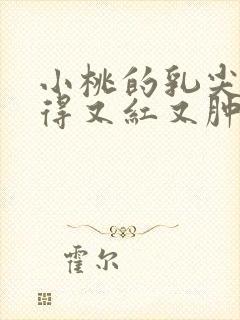 小桃的乳尖
得又红又肿
霍尔